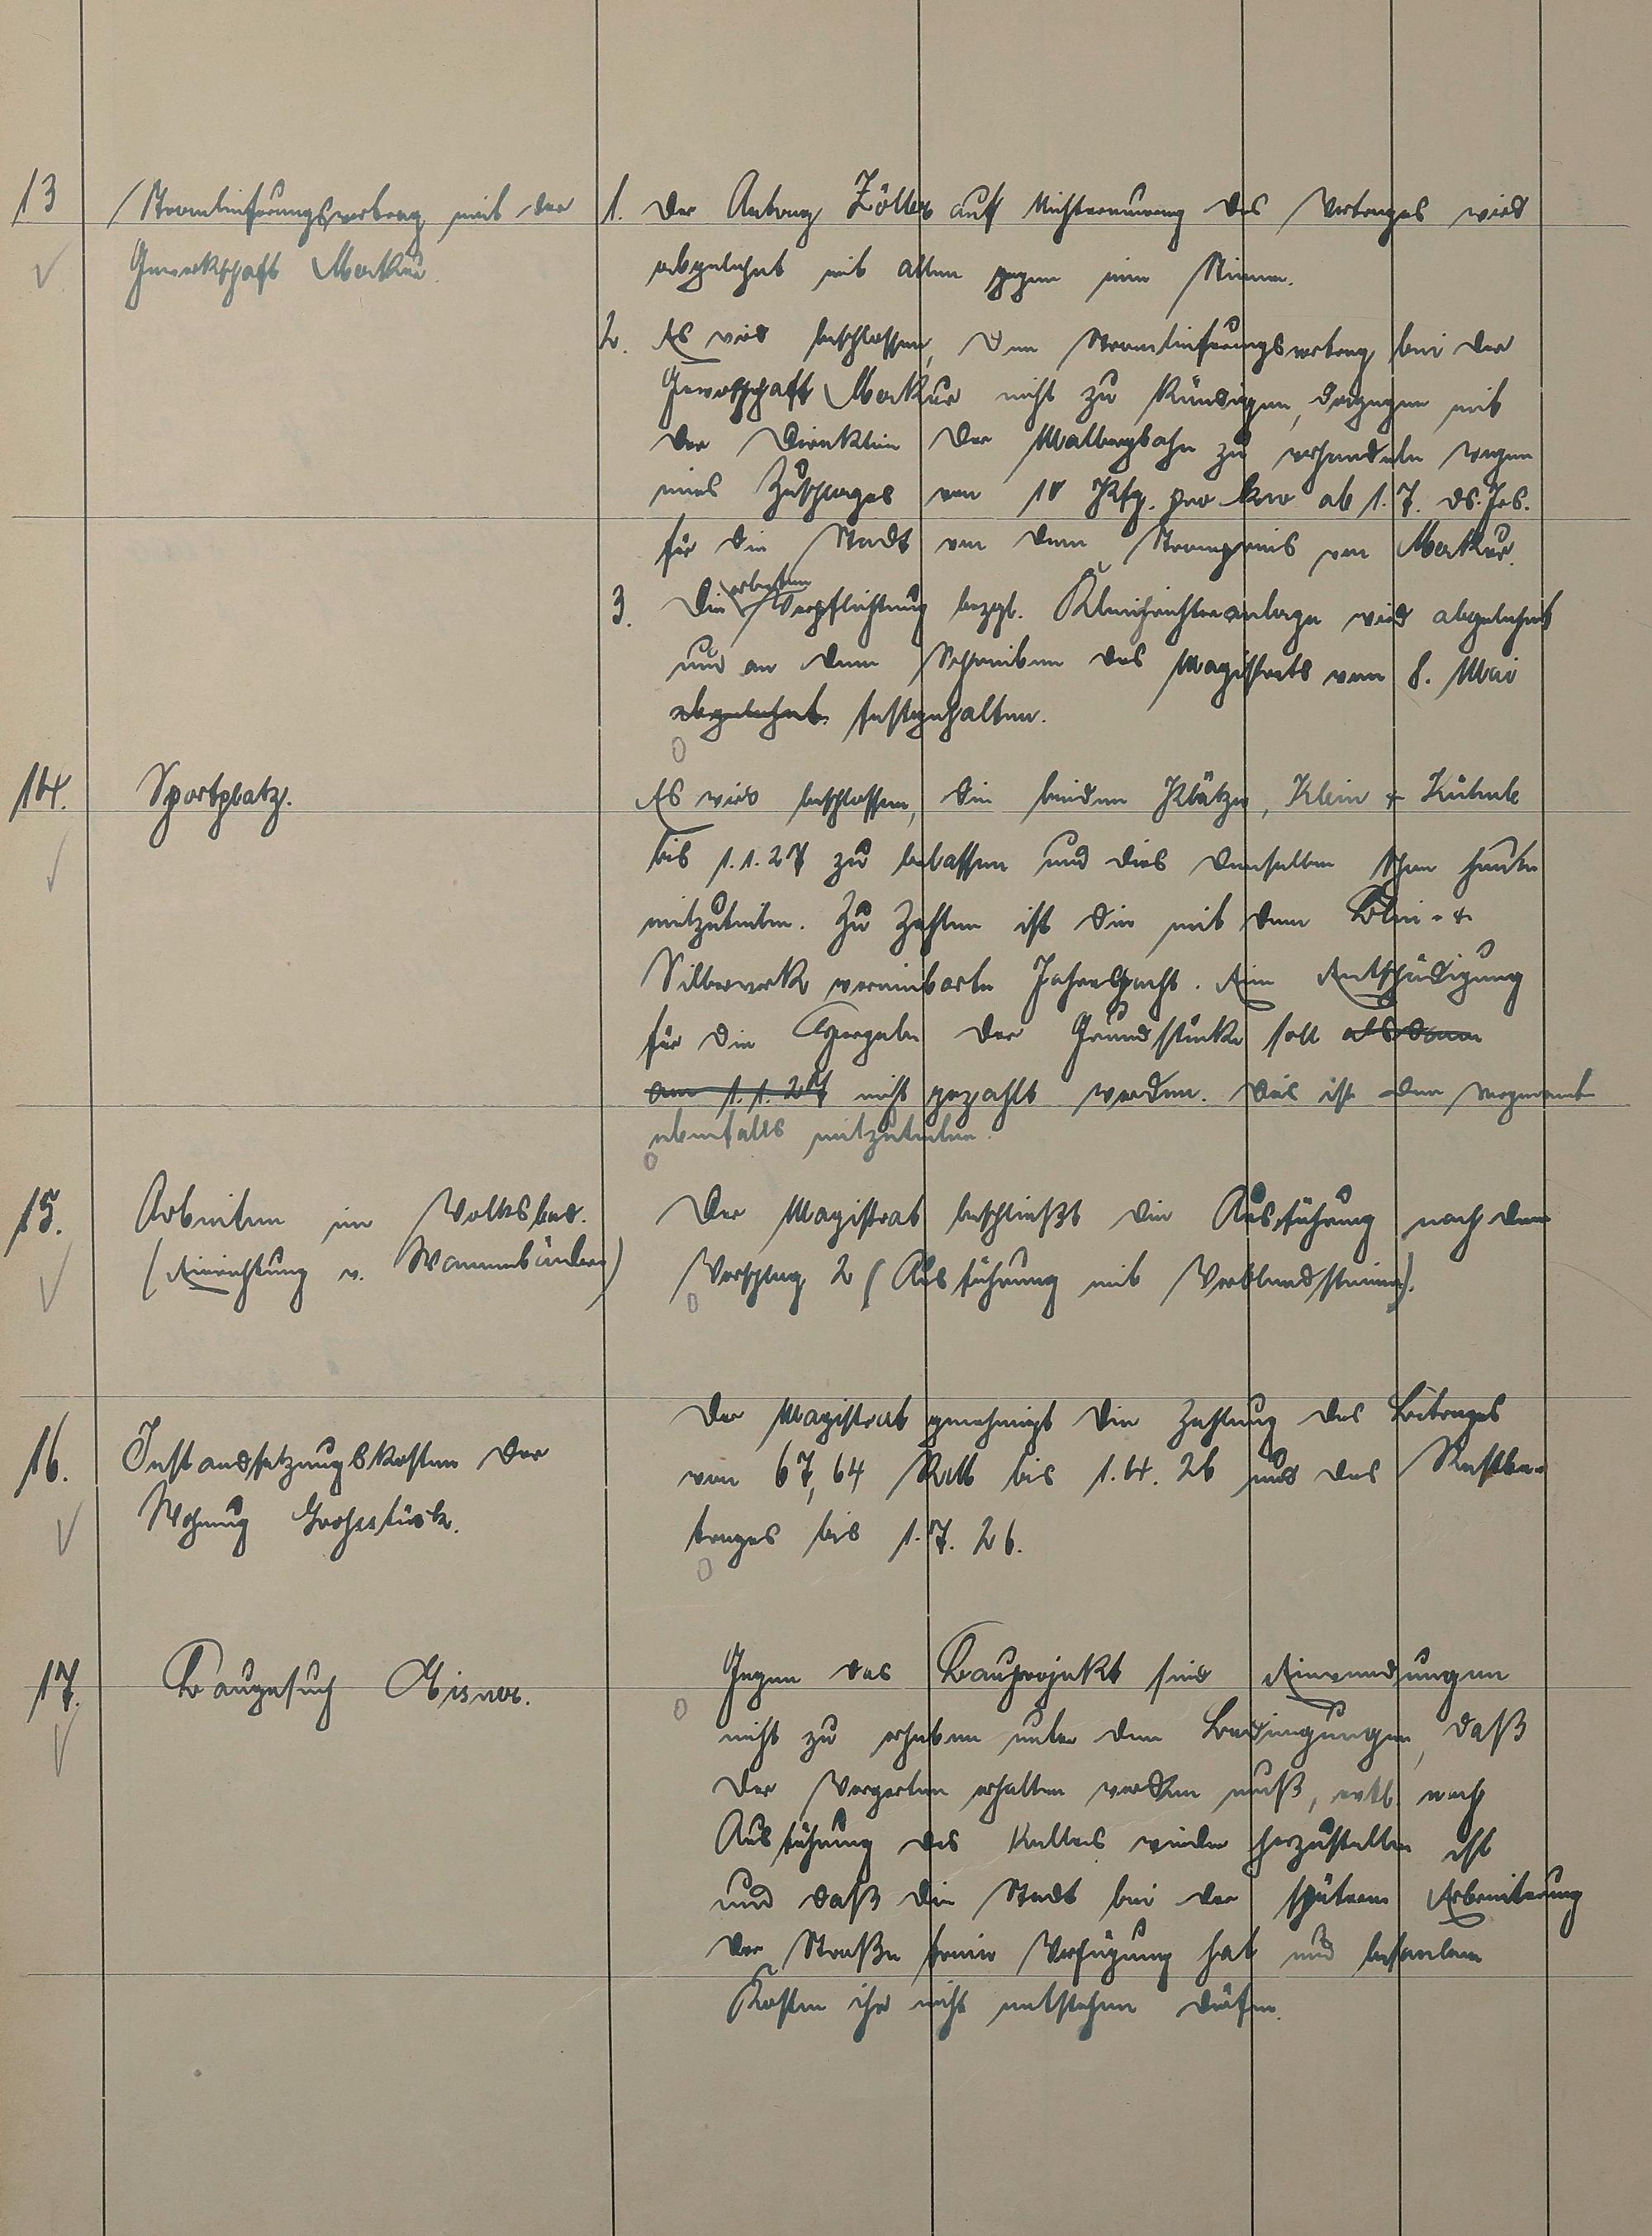 13
Stromlieferungsvertrag mit der
Gewerkschaft Merkur.
1. Der Antrag Zöller auf Nichterneuerung des Vertrages wird
abgelehnt mit allen gegen eine Stimme.
2. Es wird beschlossen, den Stromlieferungsvertrag bei der
Gewerkschaft Merkur nicht zu kündigen, dagegen mit
der Direktion der Malbergbahn zu verhandeln wegen
eines Zuschlages von 10 Pfg. pro kw ab 1.7. ds. Js.
für die Stadt von dem Strompreis von Merkur.
3. Die erbetene Verpflichtung bezgl. Gleichrichteranlage wird abgelehnt
und an dem Schreiben des Magistrats vom 8. Mai
abgelehnt festgehalten.
14.
Sportplatz.
Es wird beschlossen, die beiden Plätze, Klein + Kühnle
bis 1.1.27 zu belassen und dies denselben schon heute
mitzuteilen. Zu zahlen ist die mit dem Blei- +
Silberwerk vereinbarte Jahrespacht. Eine Entschädigung
für die Hergabe der Grundstücke soll alsdann
am 1.1.27 nicht gezahlt werden. Dies ist den
ebenfalls mitzuteilen.
15.
Arbeiten im Volksbad.
(Einrichtung v. Wannenbädern)
Der Magistrat beschließt die Ausführung nach dem
Vorschlag 2 (Ausführung mit Verblendsteinen).
16.
Instandsetzungskosten der
Wohnung Grohsstück.
Der Magistrat genehmigt die Zahlung des Beitrages
von 67,64 RM bis 1.4.26 und des Restbe-
trages bis 1.7.26.
17.
Baugesuch Eisner.
Gegen das Bauprojekt sind Einwendungen
nicht zu erheben unter den Bedingungen, daß
der Vorgarten erhalten werden muß, evtl. nach
Ausführung des Kellers wieder herzustellen ist
und daß die Stadt bei der spätern Erbreiterung
der Straße freie Verfügung hat und besondere
Kosten ihr nicht entstehen dürfen.